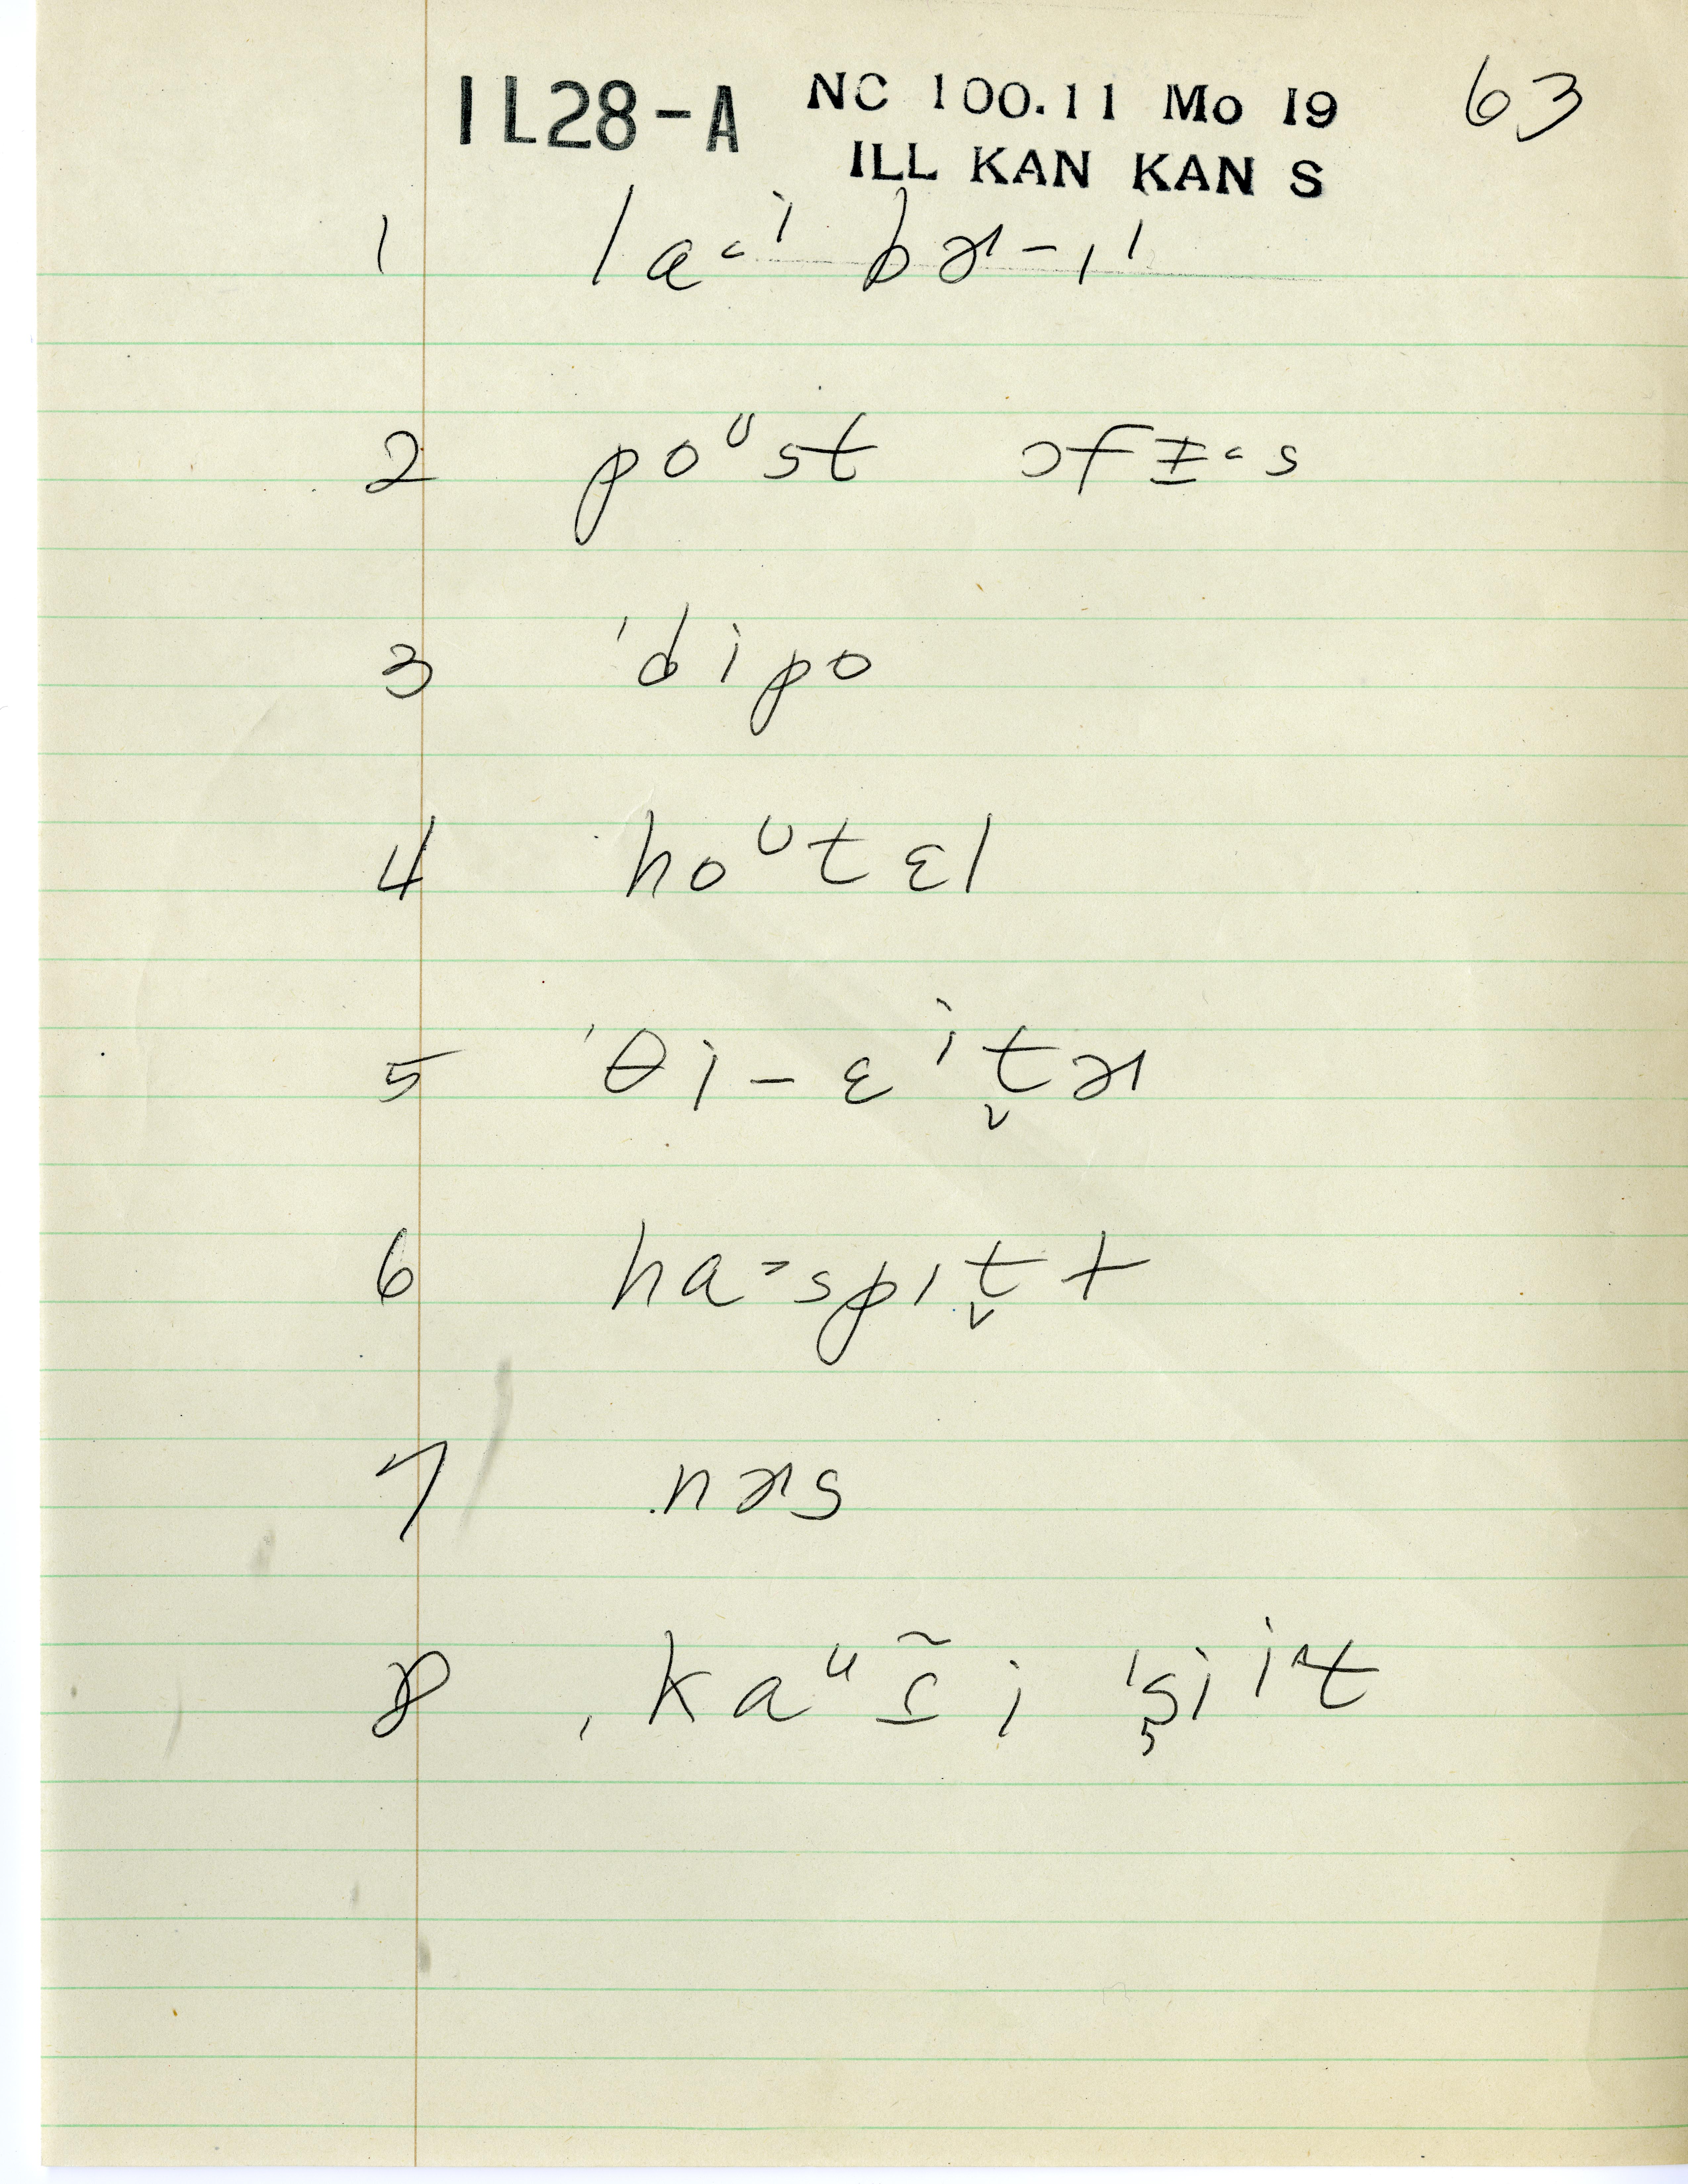 IL28-A NC 100.11 Mo 19 63
ILL KAN KAN S
1 la˂ⁱ bɚ-ıˈ
2 poᶷst ɔfɪ̵̱˂s
3 ˈdipo
4 hoᶷtɛl
5 ˈθi-ɛⁱt̬ɚ
6 ha˃spɪt̬ɫ
7 nɚs
8 ˌkaᵘɪ̱̃i ˈs̡iⁱ^t